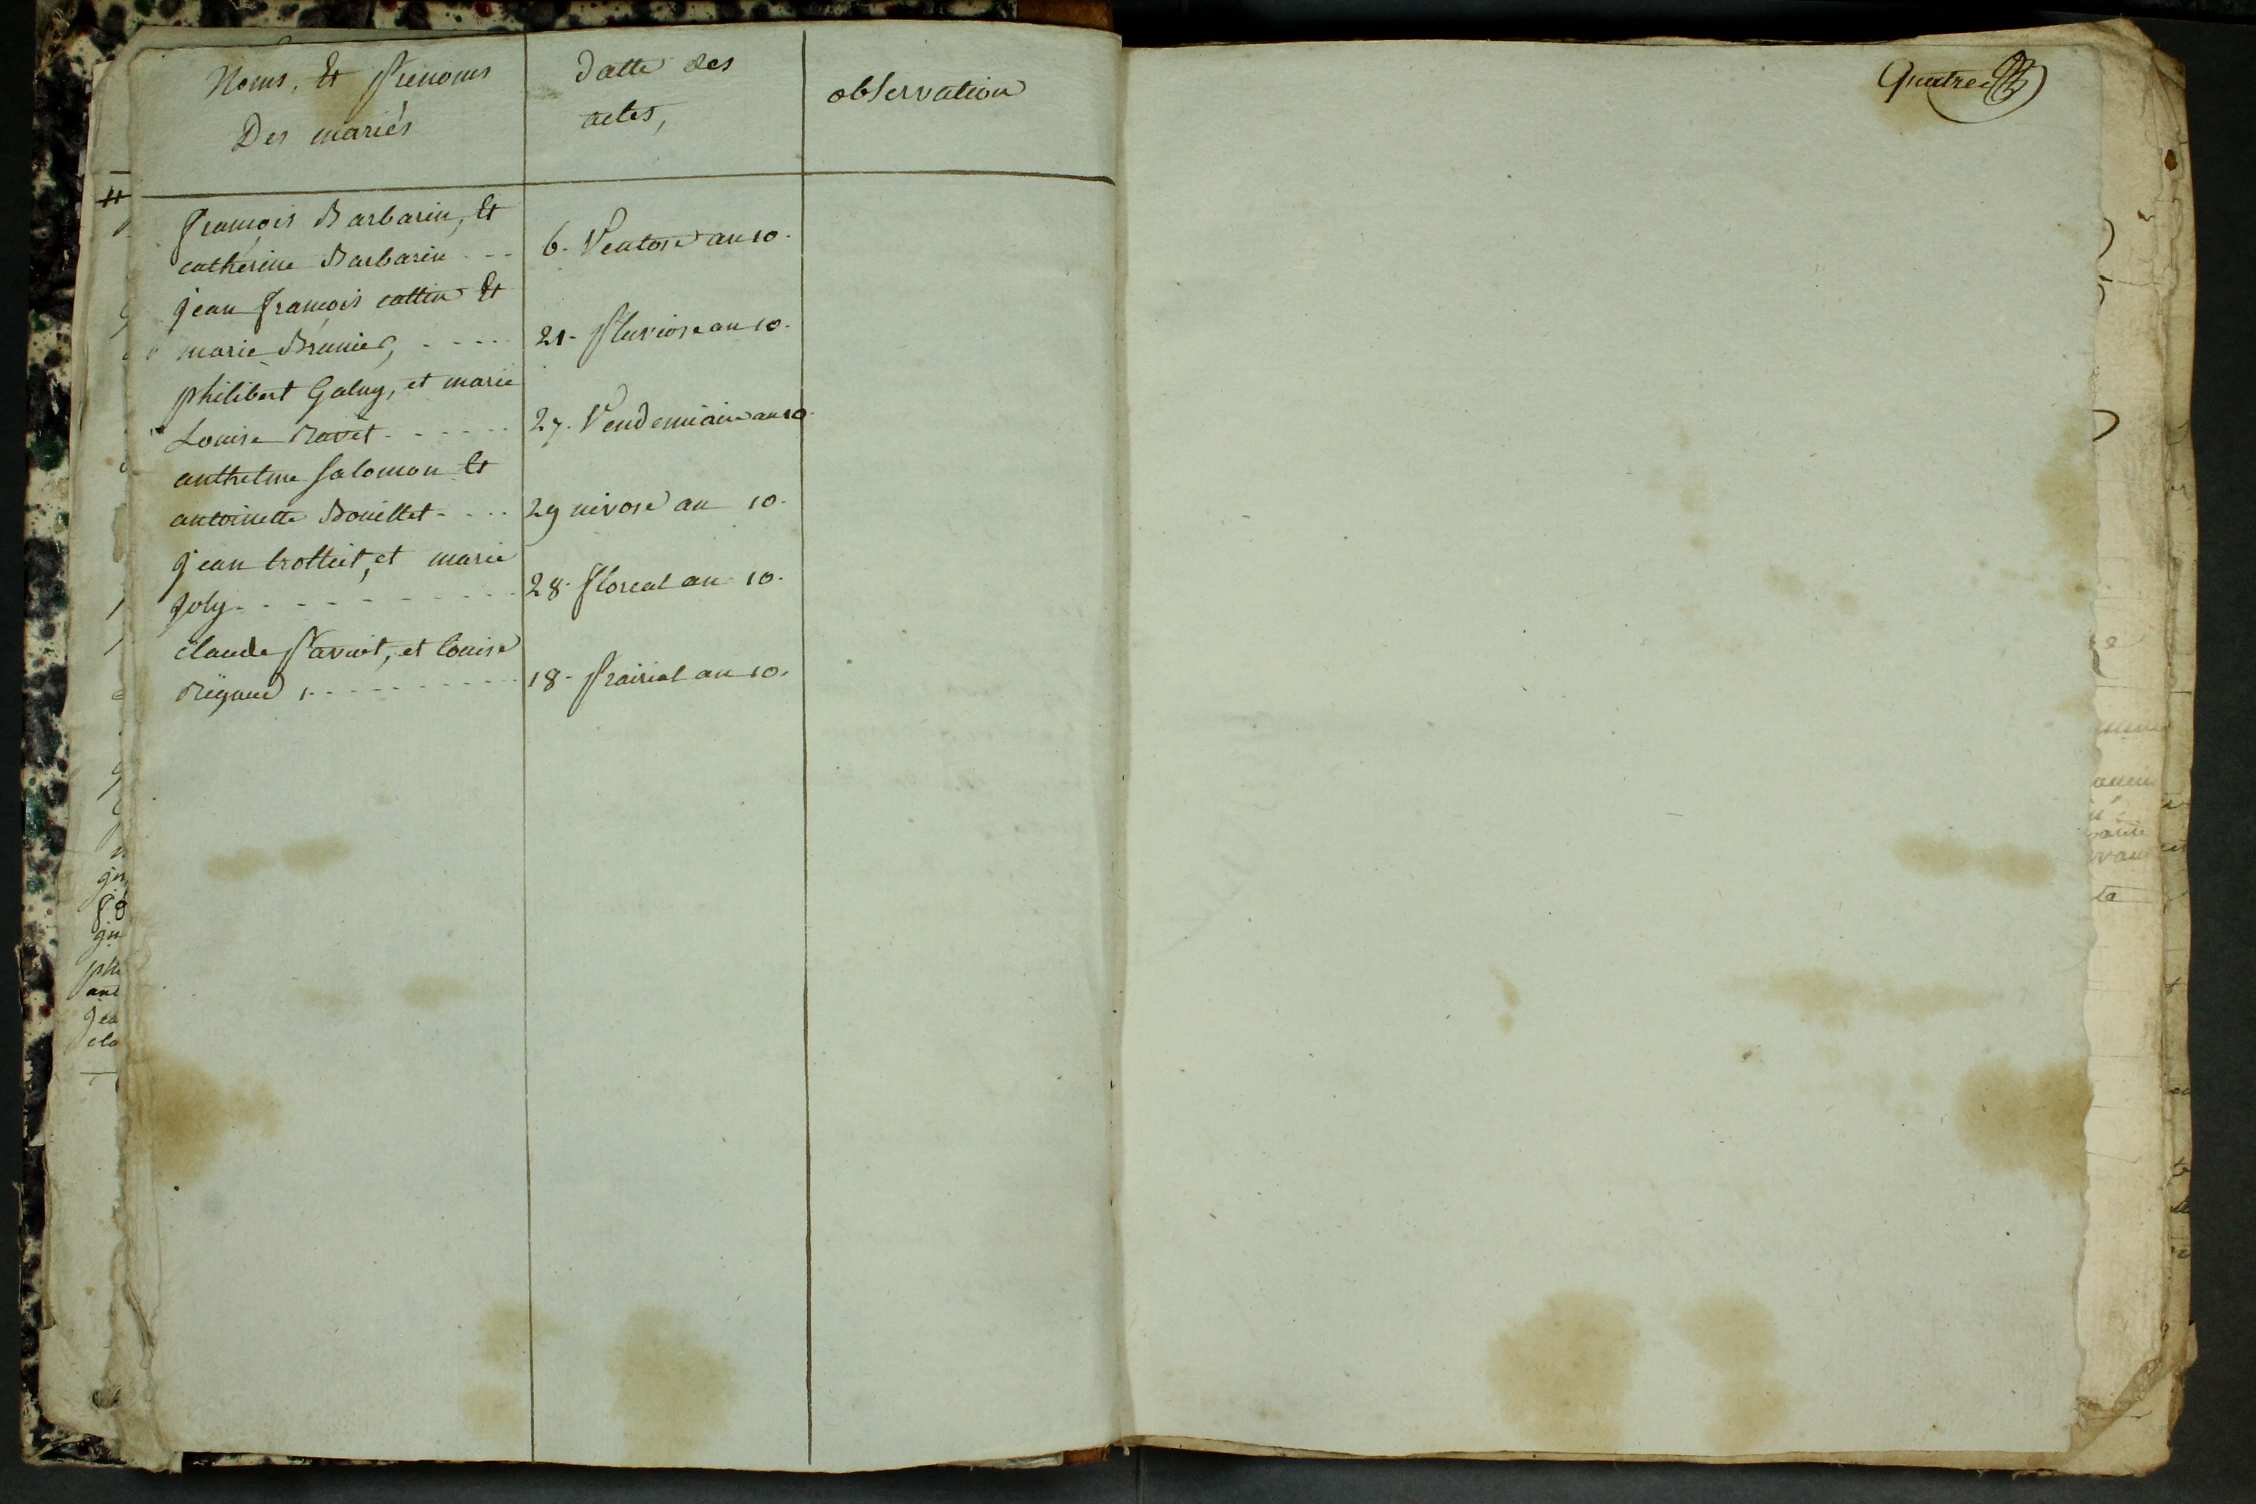 Noms, Et Prenoms
Des mariés
datte des
actes,
observation
françois Barbarin, Et
catherine Barbarin - - -
6. Ventose an 10.
jean françois cattin Et
marie Brunier, - - - -
21. Pluviose an 10.
philibert Galuy, et marie
Louise Ravet - - - - - -
27. Vendemiaire an 10.
anthelme Salomon Et
antoinette Bouillet - - - -
29 nivose an 10.
jean trottet, et marie
Joly - - - - - - - - - -
28. floreal an 10.
claude Paviot, et Louise
Reyaud , - - - - - - - - -
18. Prairial an 10.
Quatre